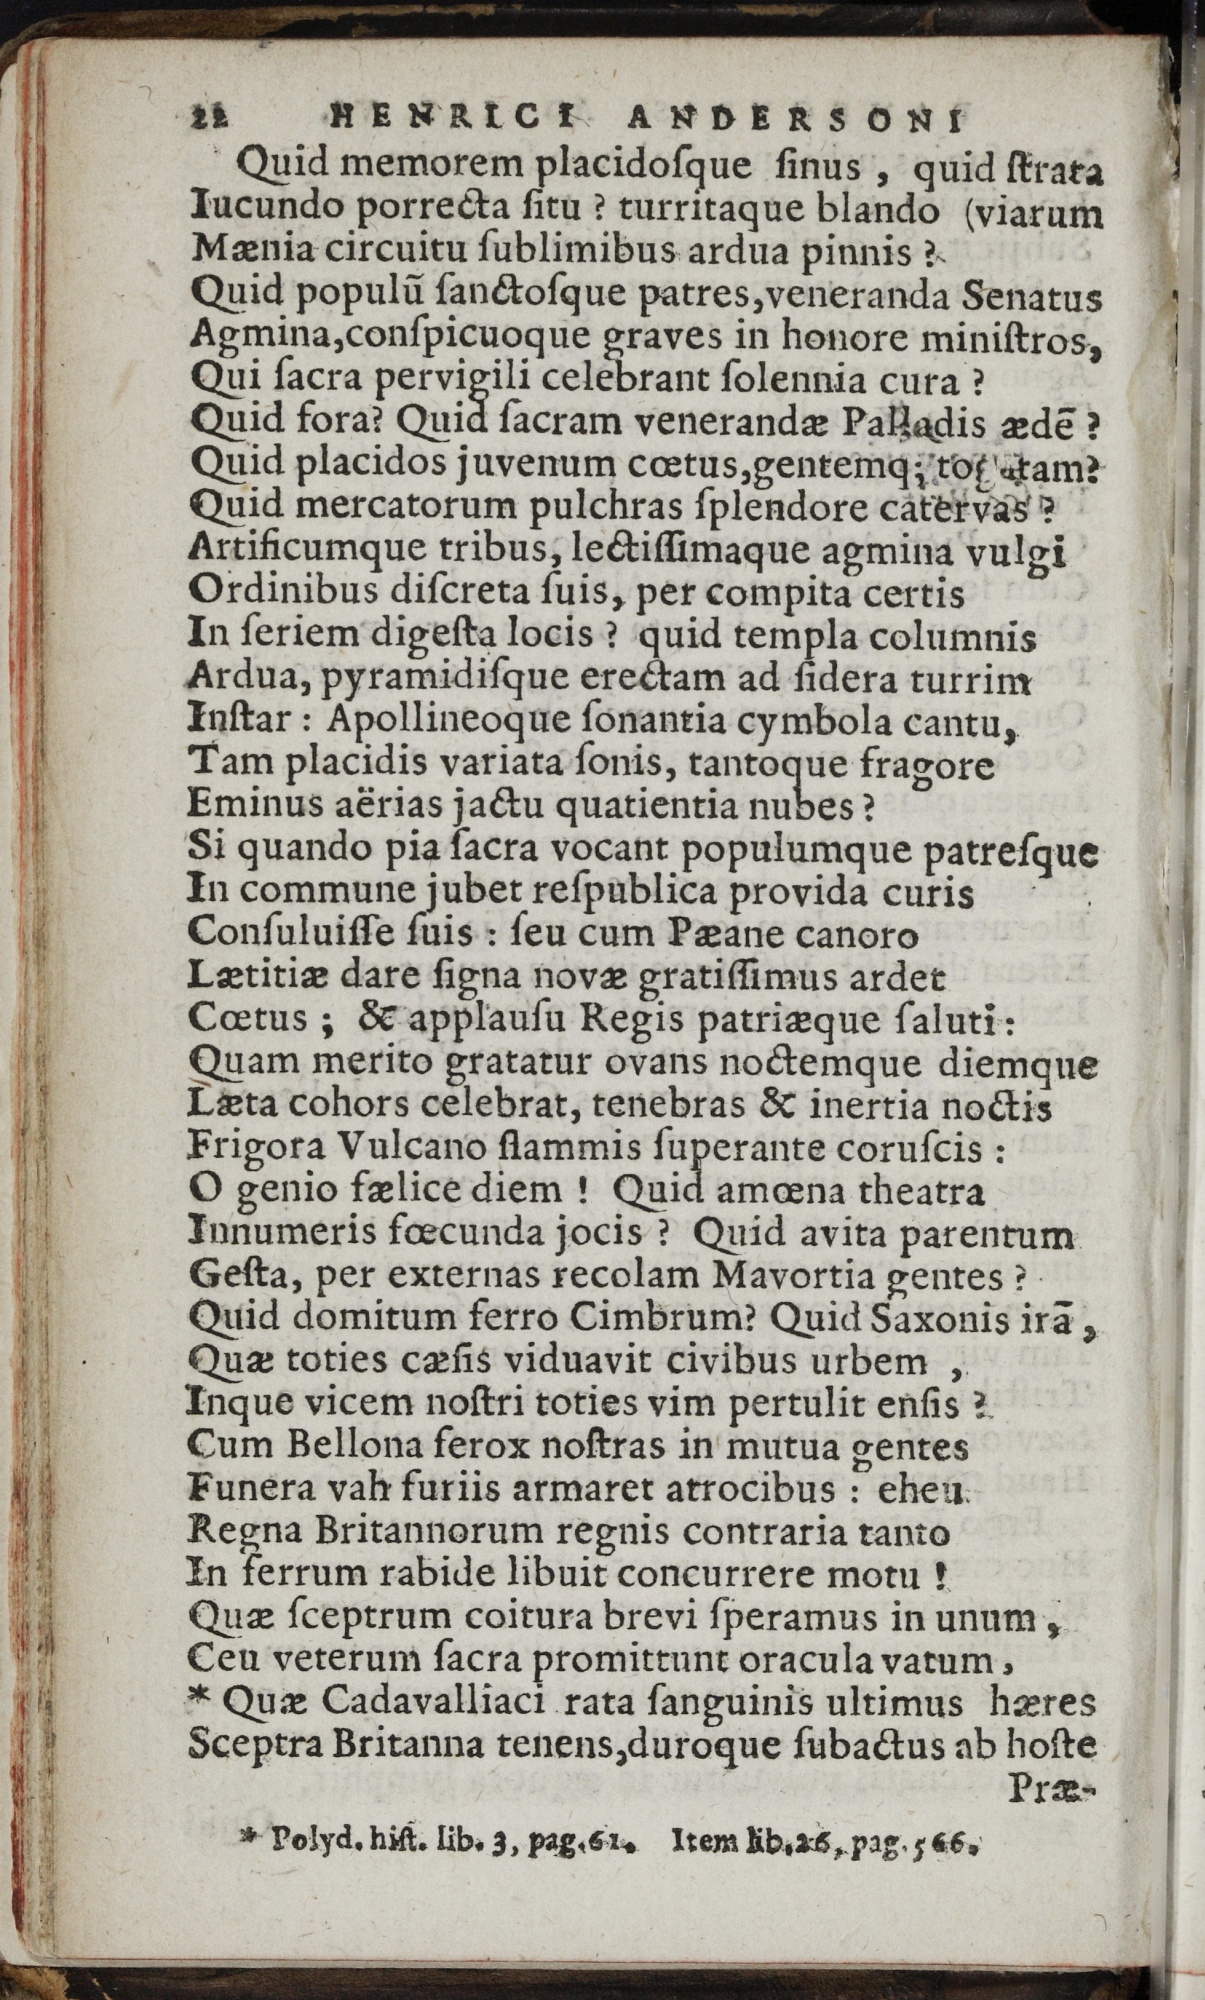 22 HENRICI ANDERSONI
Quid memorem placidoſque ſinus , quid ſtrata
Iucundo porrecta ſitu ? turritaque blando (viarum
Mænia circuitu ſublimibus ardua pinnis ?
Quid populũ ſanctoſque patres,veneranda Senatus
Agmina,conſpicuoque graves in honore miniſtros,
Qui ſacra pervigili celebrant ſolennia cura ?
Quid fora? Quid ſacram venerandæ Palladis ædē ?
Quid placidos juvenum cœtus,gentemq; togatam?
Quid mercatorum pulchras ſplendore catervas ?
Artificumque tribus, lectiſſimaque agmina vulgi
Ordinibus diſcreta ſuis, per compita certis
In ſeriem digeſta locis ? quid templa columnis
Ardua, pyramidiſque erectam ad ſidera turrim
Inſtar : Apollineoque ſonantia cymbola cantu,
Tam placidis variata ſonis, tantoque fragore
Eminus aërias jactu quatientia nubes ?
Si quando pia ſacra vocant populumque patreſque
In commune jubet reſpublica provida curis
Conſuluiſſe ſuis : ſeu cum Pæane canoro
Lætitiæ dare ſigna novæ gratiſſimus ardet
Cœtus ; & applauſu Regis patriæque ſaluti :
Quam merito gratatur ovans noctemque diemque
Læta cohors celebrat, tenebras & inertia noctis
Frigora Vulcano flammis ſuperante coruſcis :
O genio fælice diem ! Quid amœna theatra
Innumeris fœcunda jocis ? Quid avita parentum
Geſta, per externas recolam Mavortia gentes ?
Quid domitum ferro Cimbrum? Quid Saxonis irã ,
Quæ toties cæſis viduavit civibus urbem ,
Inque vicem noſtri toties vim pertulit enſis ?
Cum Bellona ferox noſtras in mutua gentes
Funera vah furiis armaret atrocibus : eheu
Regna Britannorum regnis contraria tanto
In ferrum rabide libuit concurrere motu !
Quæ ſceptrum coitura brevi ſperamus in unum ,
Ceu veterum ſacra promittunt oracula vatum ,
* Quæ Cadavalliaci rata ſanguinis ultimus hæres
Sceptra Britanna tenens,duroque ſubactus ab hoſte
Præ-
* Polyd. hiſt. lib. 3, pag.61. Item lib.26, pag. 566.